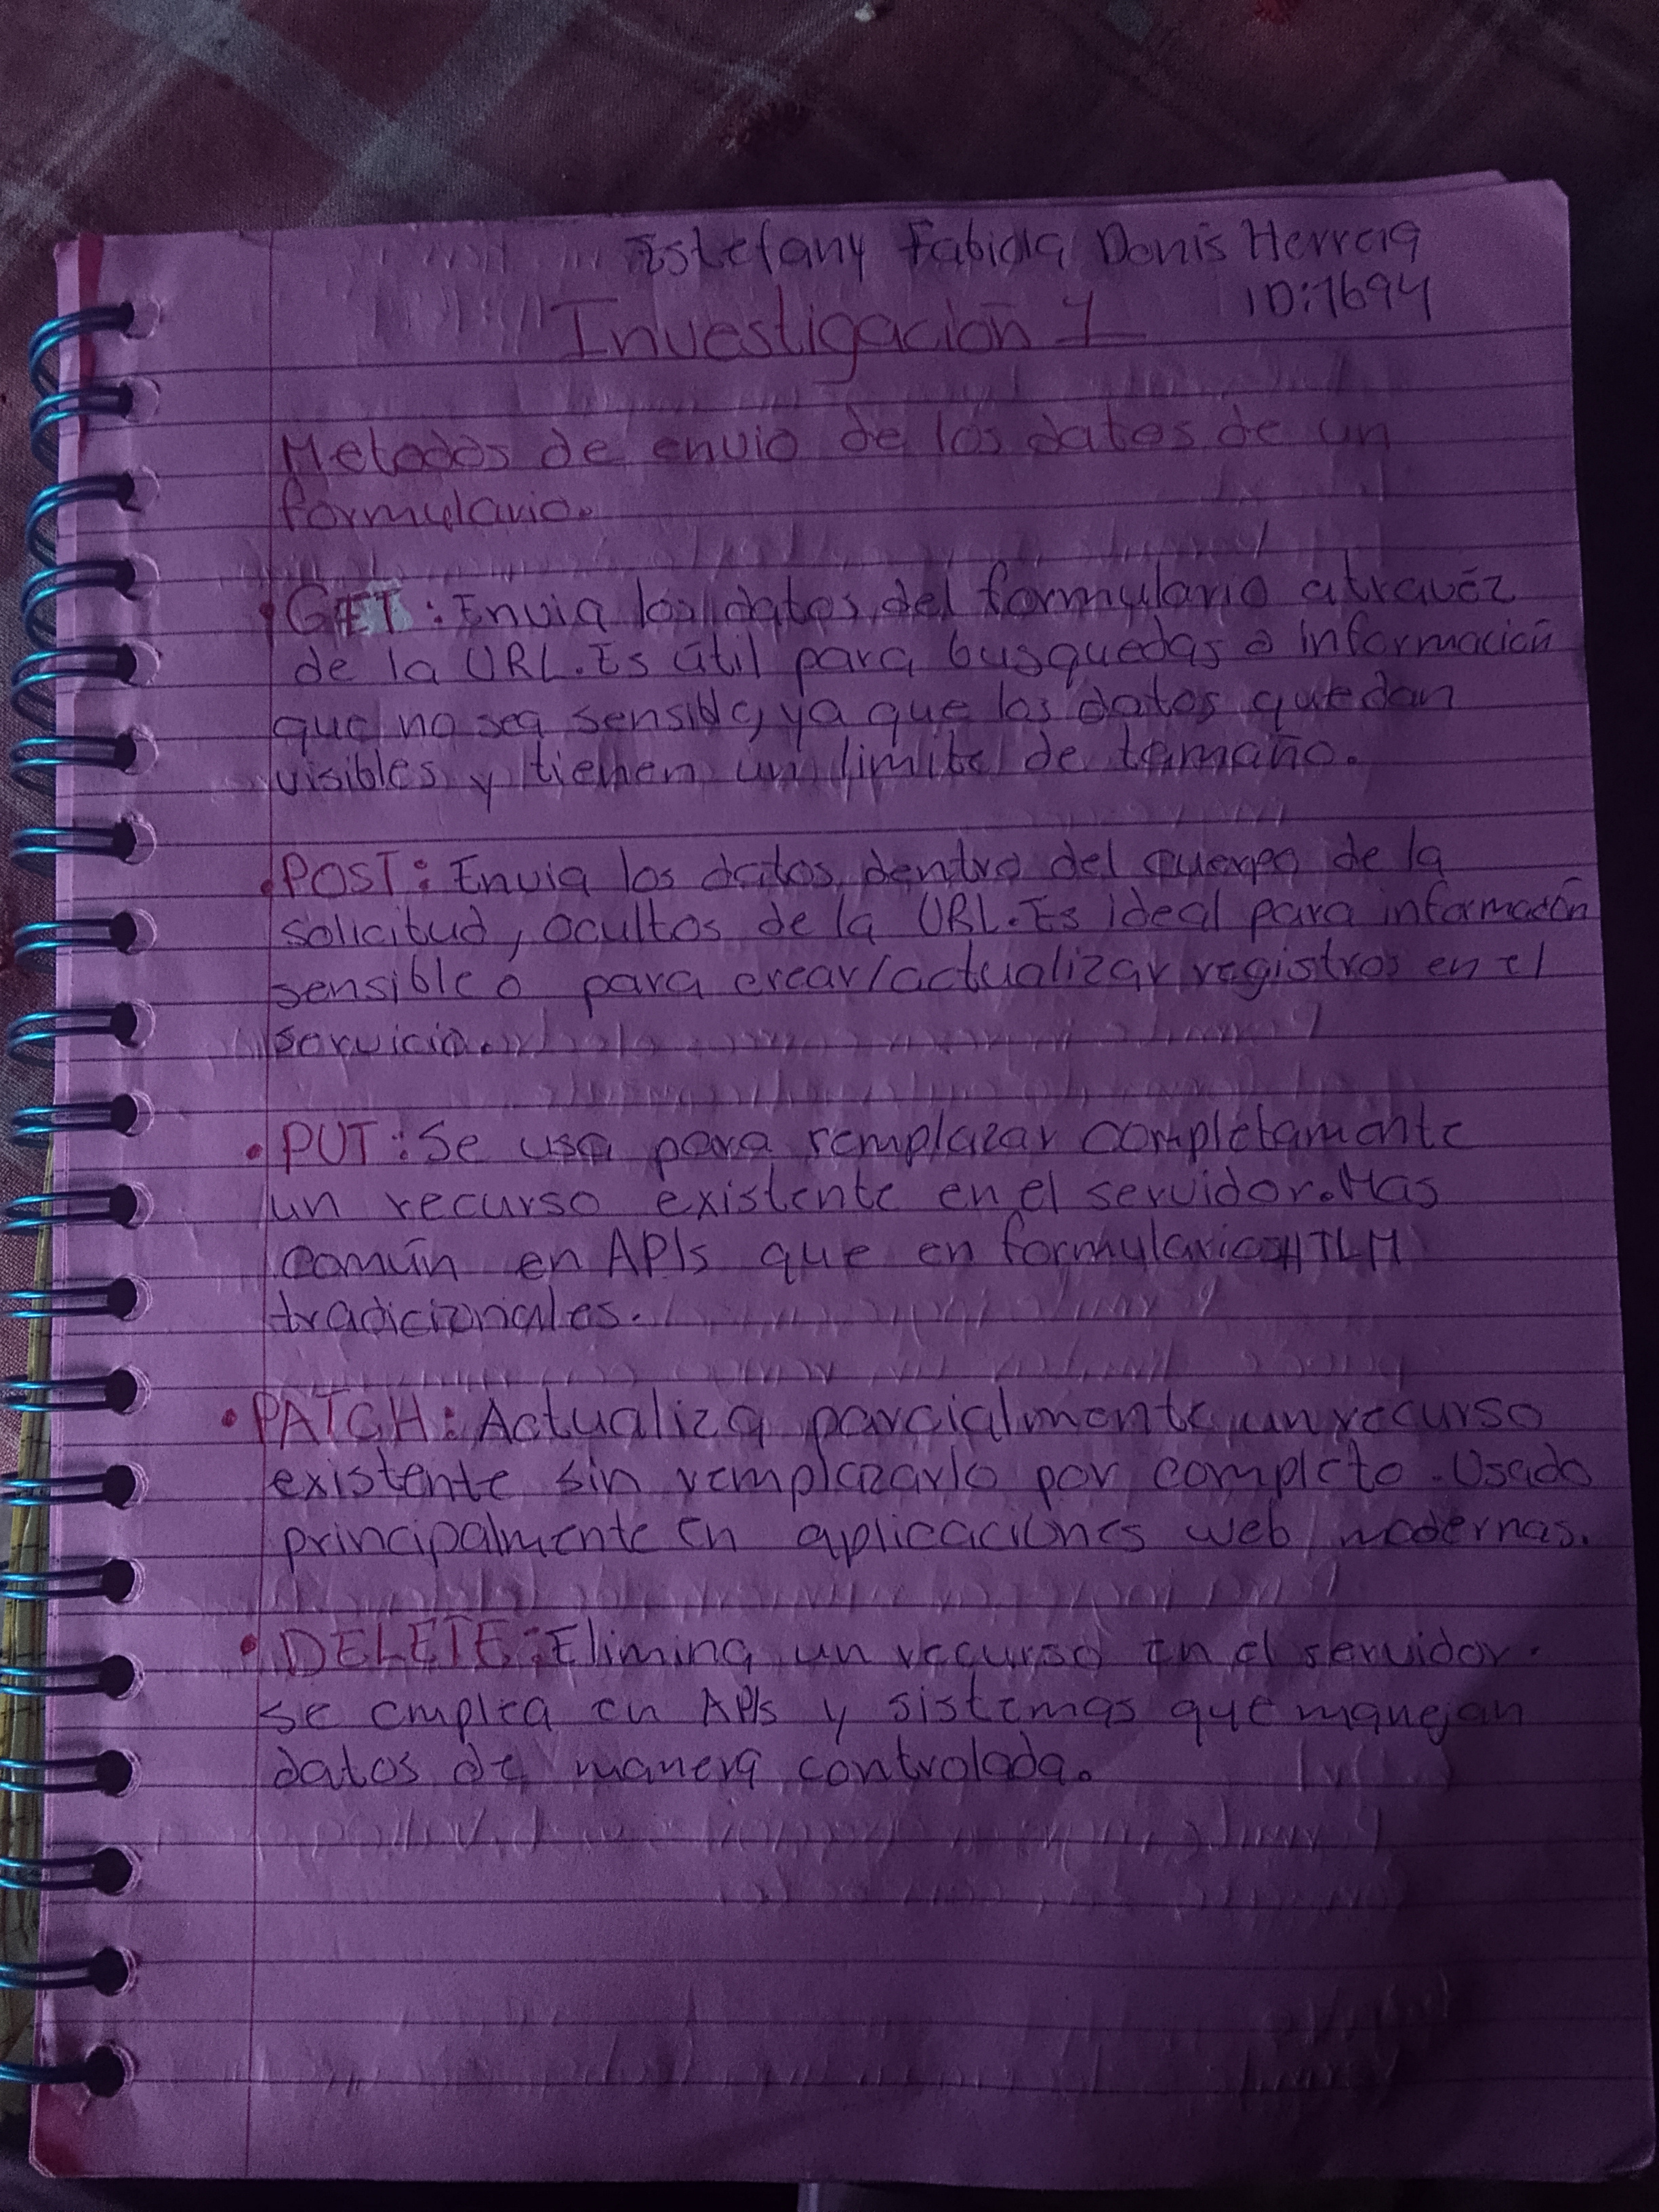 Estefany Fabiola Donis Herrera
ID:1694
Investigación 1
Metodos de envio de los datos de un
formulario.
• GET: Envia los datos del formulario atravéz
de la URL. Es útil para busquedas o información
que no sea sensible, ya que los datos quedan
visibles y tienen un limite de tamaño.
• POST: Envia los datos dentro del cuerpo de la
solicitud, ocultos de la URL. Es ideal para información
sensible o para crear/actualizar registros en el
servicio.
• PUT: Se usa para remplazar completamente
un recurso existente en el servidor. Mas
común en APIs que en formularios HTLM
tradicionales.
• PATCH: Actualiza parcialmente un recurso
existente sin remplazarlo por completo. Usado
principalmente en aplicaciones web modernas.
• DELETE: Elimina un recurso en el servidor.
se emplea en APIs y sistemas que manejan
datos de manera controlada.